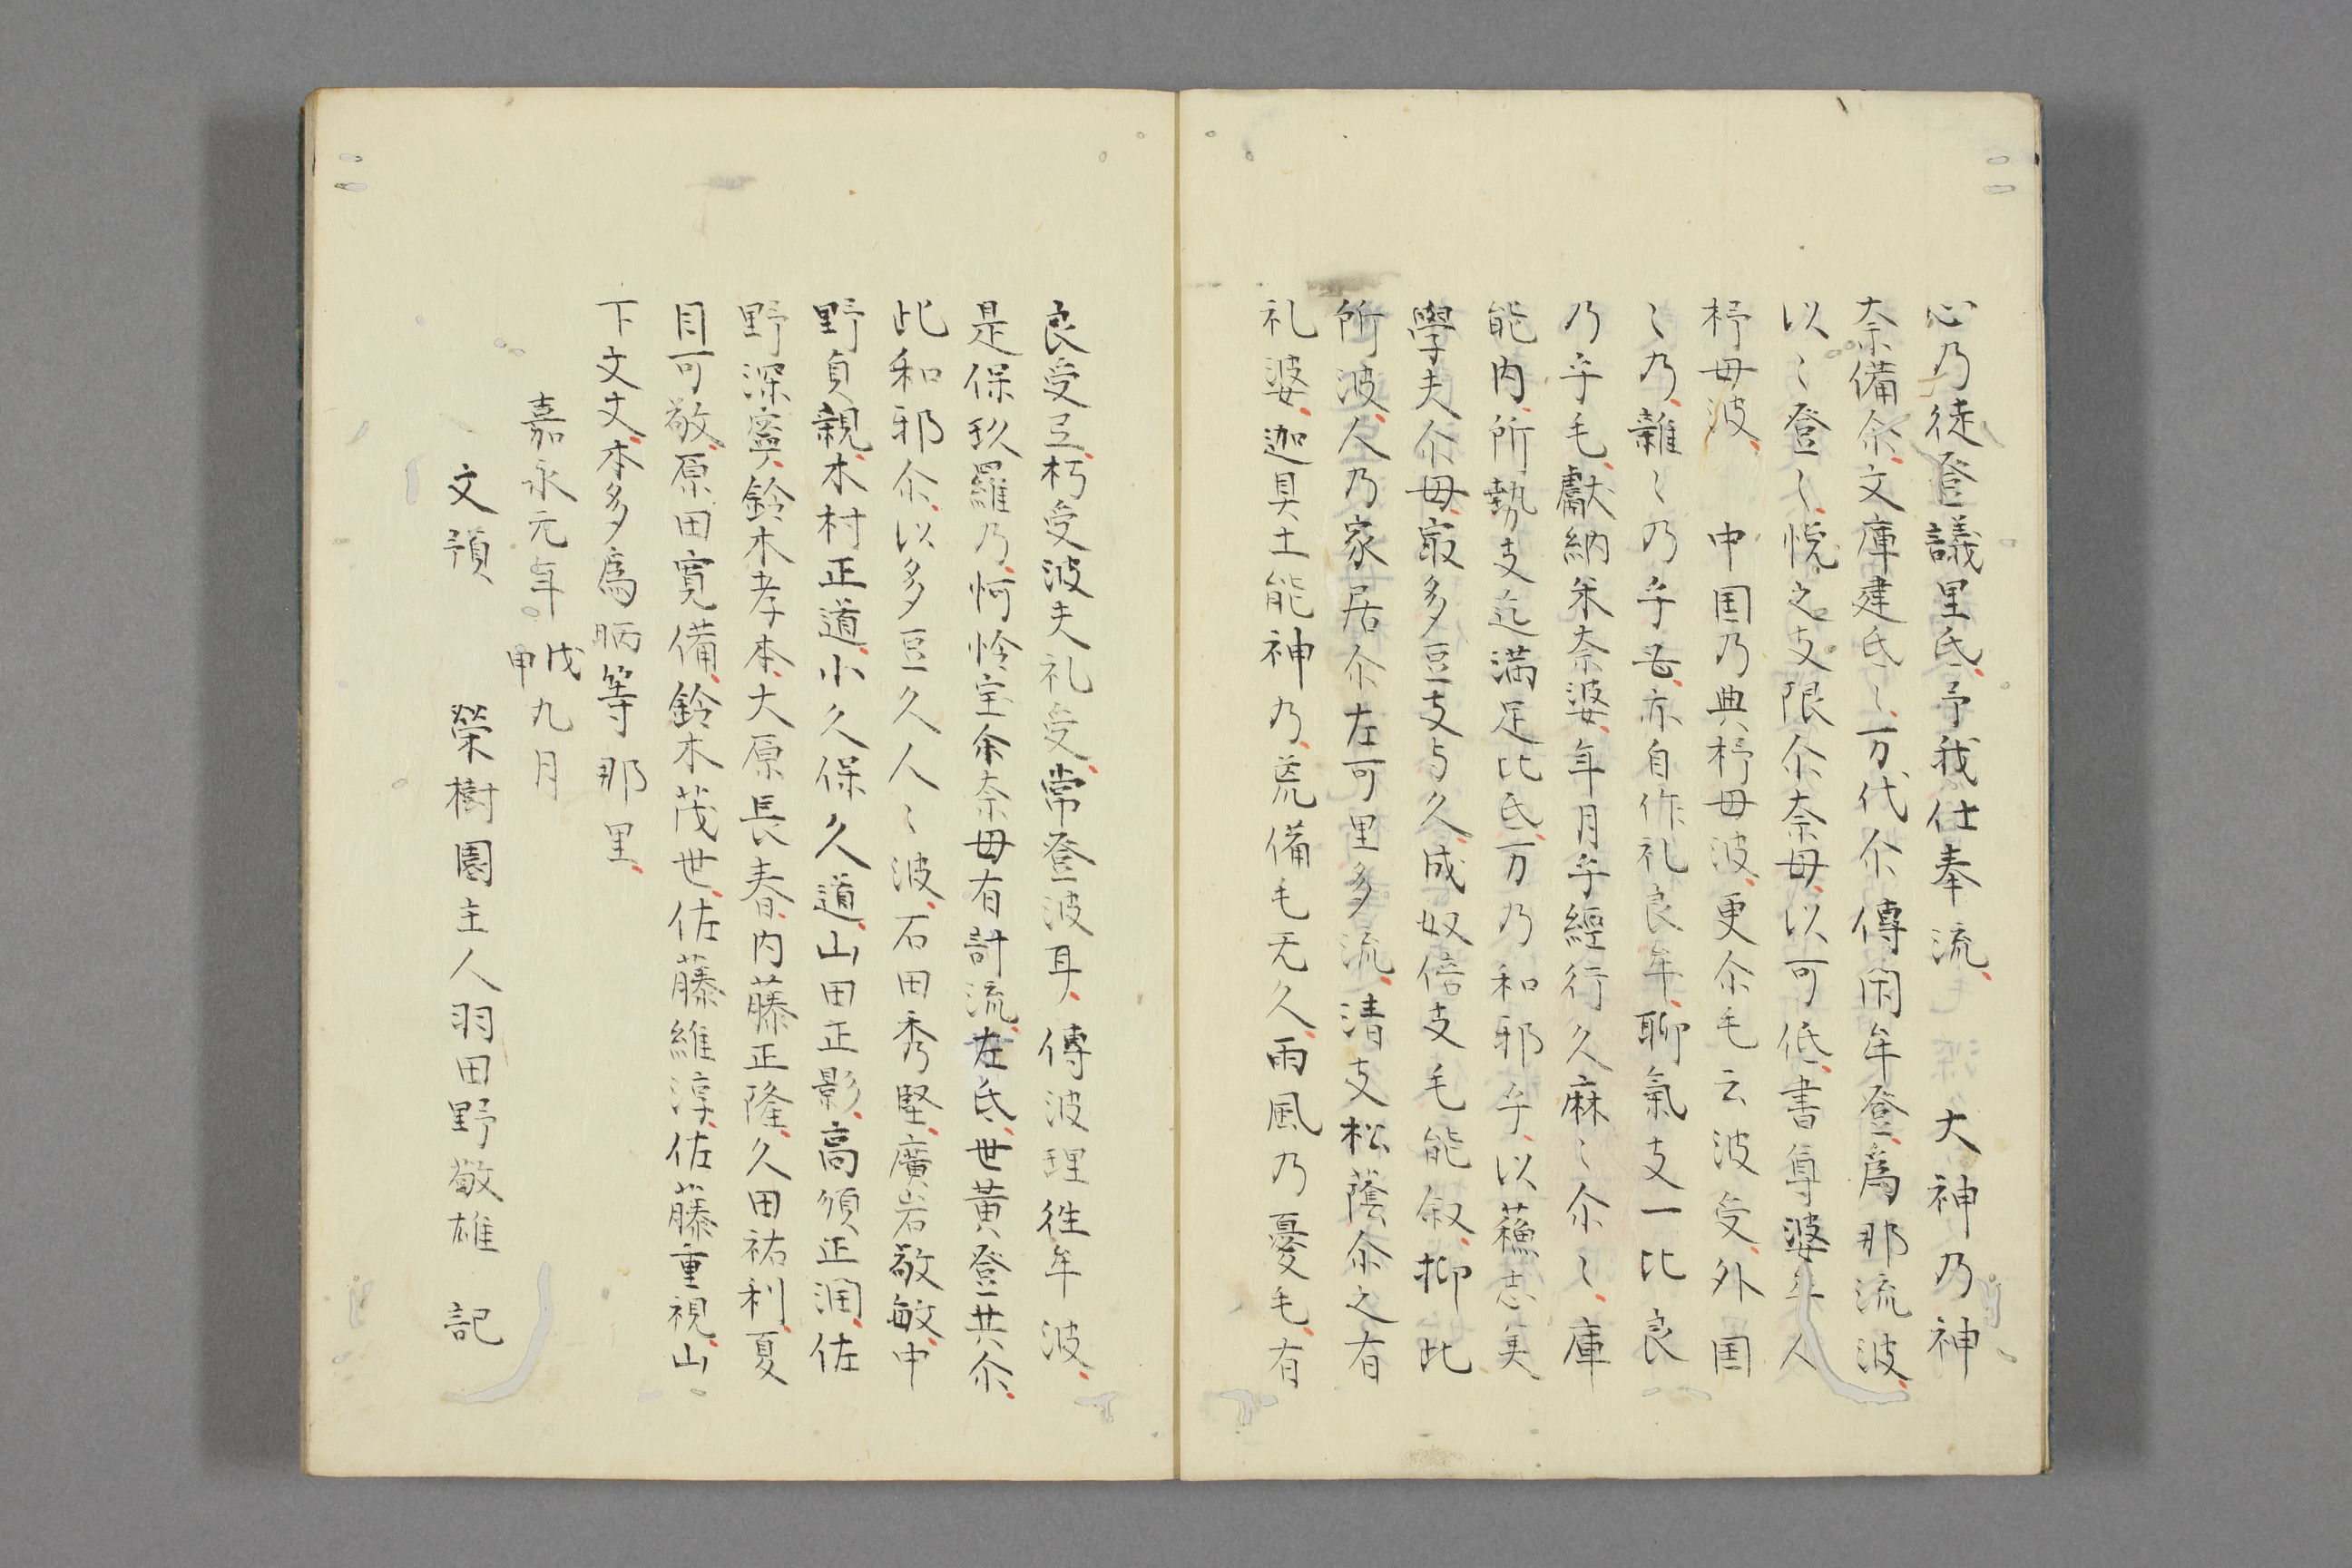 心乃徒登議里氐予我仕奉流　大神乃神
奈備尓文庫建氐〻万代尓傳聞牟登爲那流波
以〻登〻悦之支限尓奈毋以可低書尊婆牟人
杼毋波　中国乃典杼毋波更尓毛云波受外国
〻乃雜〻乃乎毛亦自作礼良牟聊氣支一比良
乃乎毛獻納米奈婆年月乎經行久麻〻尓〻庫
能内所勢支迄満足比氐万乃和邪乎以蘓志美
學夫尓毋最多豆支与久成奴倍支毛能叙抑此
所波人乃家居尓左可里多流清支松蔭尓之有
礼婆迦具土能神乃荒備毛无久雨風乃憂毛有
良受豆朽受波夫礼受常登波耳傳波理徃牟波
是保玖羅乃怜宝尓奈毋有計流左氐世黄登共尓
此和邪尓以多豆久人〻波石田秀堅廣岩敬敏中
野貞親木村正道小久保久道山田正影高須正潤佐
野深寧鈴木孝本大原長春内藤正隆久田祐利夏
目可敬原田寛備鈴木茂世佐藤維淳佐藤重視山
下文丈本多爲昞等那里
嘉永元年戊申九月
文預　榮樹園主人羽田野敬雄　記